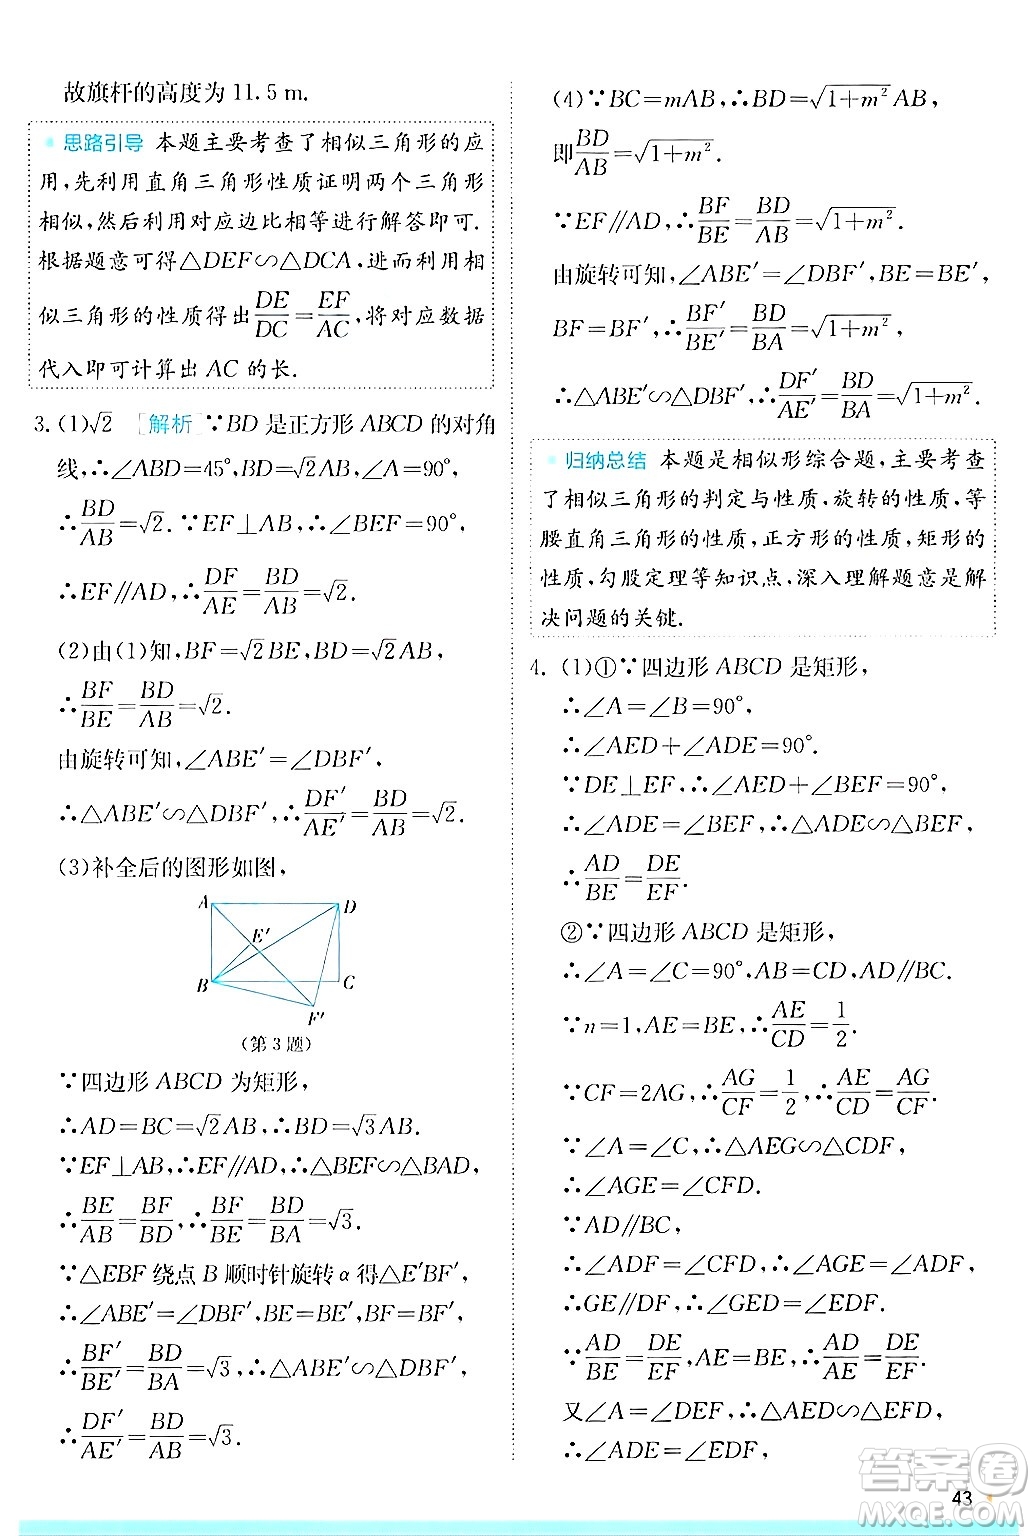 故旗杆的高度为 11.5 m.
思路引导 本题主要考查了相似三角形的应
用,先利用直角三角形性质证明两个三角形
相似,然后利用对应边比相等进行解答即可.
根据题意可得△DEF∽△DCA,进而利用相
似三角形的性质得出DE/DC=EF/AC,将对应数据
代入即可计算出 AC 的长.
3. (1)√2 [解析]∵BD 是正方形 ABCD 的对角
线,∴∠ABD=45°,BD=√2AB,∠A=90°,
∴BD/AB=√2. ∵EF⊥AB,∴∠BEF=90°,
∴EF∥AD,∴DF/AE=BD/AB=√2.
(2)由(1)知,BF=√2BE,BD=√2AB,
∴BF/BE=BD/AB=√2.
由旋转可知,∠ABE′=∠DBF′,
∴△ABE′∽△DBF′,∴DF′/AE′=BD/AB=√2.
(3)补全后的图形如图,
A D
E′
B C
F′
(第 3 题)
∵四边形 ABCD 为矩形,
∴AD=BC=√2AB,∴BD=√3AB.
∵EF⊥AB,∴EF∥AD,∴△BEF∽△BAD,
∴BE/AB=BF/BD,∴BF/BE=BD/BA=√3.
∵△EBF 绕点 B 顺时针旋转 α 得△E′BF′,
∴∠ABE′=∠DBF′,BE=BE′,BF=BF′,
∴BF′/BE′=BD/BA=√3,∴△ABE′∽△DBF′,
∴DF′/AE′=BD/AB=√3.
(4)∵BC=mAB,∴BD=√(1+m²)AB,
即BD/AB=√(1+m²).
∵EF∥AD,∴BF/BE=BD/BA=√(1+m²).
由旋转可知,∠ABE′=∠DBF′,BE=BE′,
BF=BF′,∴BF′/BE′=BD/BA=√(1+m²),
∴△ABE′∽△DBF′,∴DF′/AE′=BD/BA=√(1+m²).
归纳总结 本题是相似形综合题,主要考查
了相似三角形的判定与性质,旋转的性质,等
腰直角三角形的性质,正方形的性质,矩形的
性质,勾股定理等知识点,深入理解题意是解
决问题的关键.
4. (1)①∵四边形 ABCD 是矩形,
∴∠A=∠B=90°,
∴∠AED+∠ADE=90°.
∵DE⊥EF,∴∠AED+∠BEF=90°,
∴∠ADE=∠BEF,∴△ADE∽△BEF,
∴AD/BE=DE/EF.
②∵四边形 ABCD 是矩形,
∴∠A=∠C=90°,AB=CD,AD∥BC.
∵n=1,AE=BE,∴AE/CD=1/2.
∵CF=2AG,∴AG/CF=1/2,∴AE/CD=AG/CF.
∵∠A=∠C,∴△AEG∽△CDF,
∴∠AGE=∠CFD.
∵AD∥BC,
∴∠ADF=∠CFD,∴∠AGE=∠ADF,
∴GE∥DF,∴∠GED=∠EDF.
∵AD/BE=DE/EF,AE=BE,∴AD/AE=DE/EF.
又∠A=∠DEF,∴△AED∽△EFD,
∴∠ADE=∠EDF,
43
答案圈
MXQE.COM